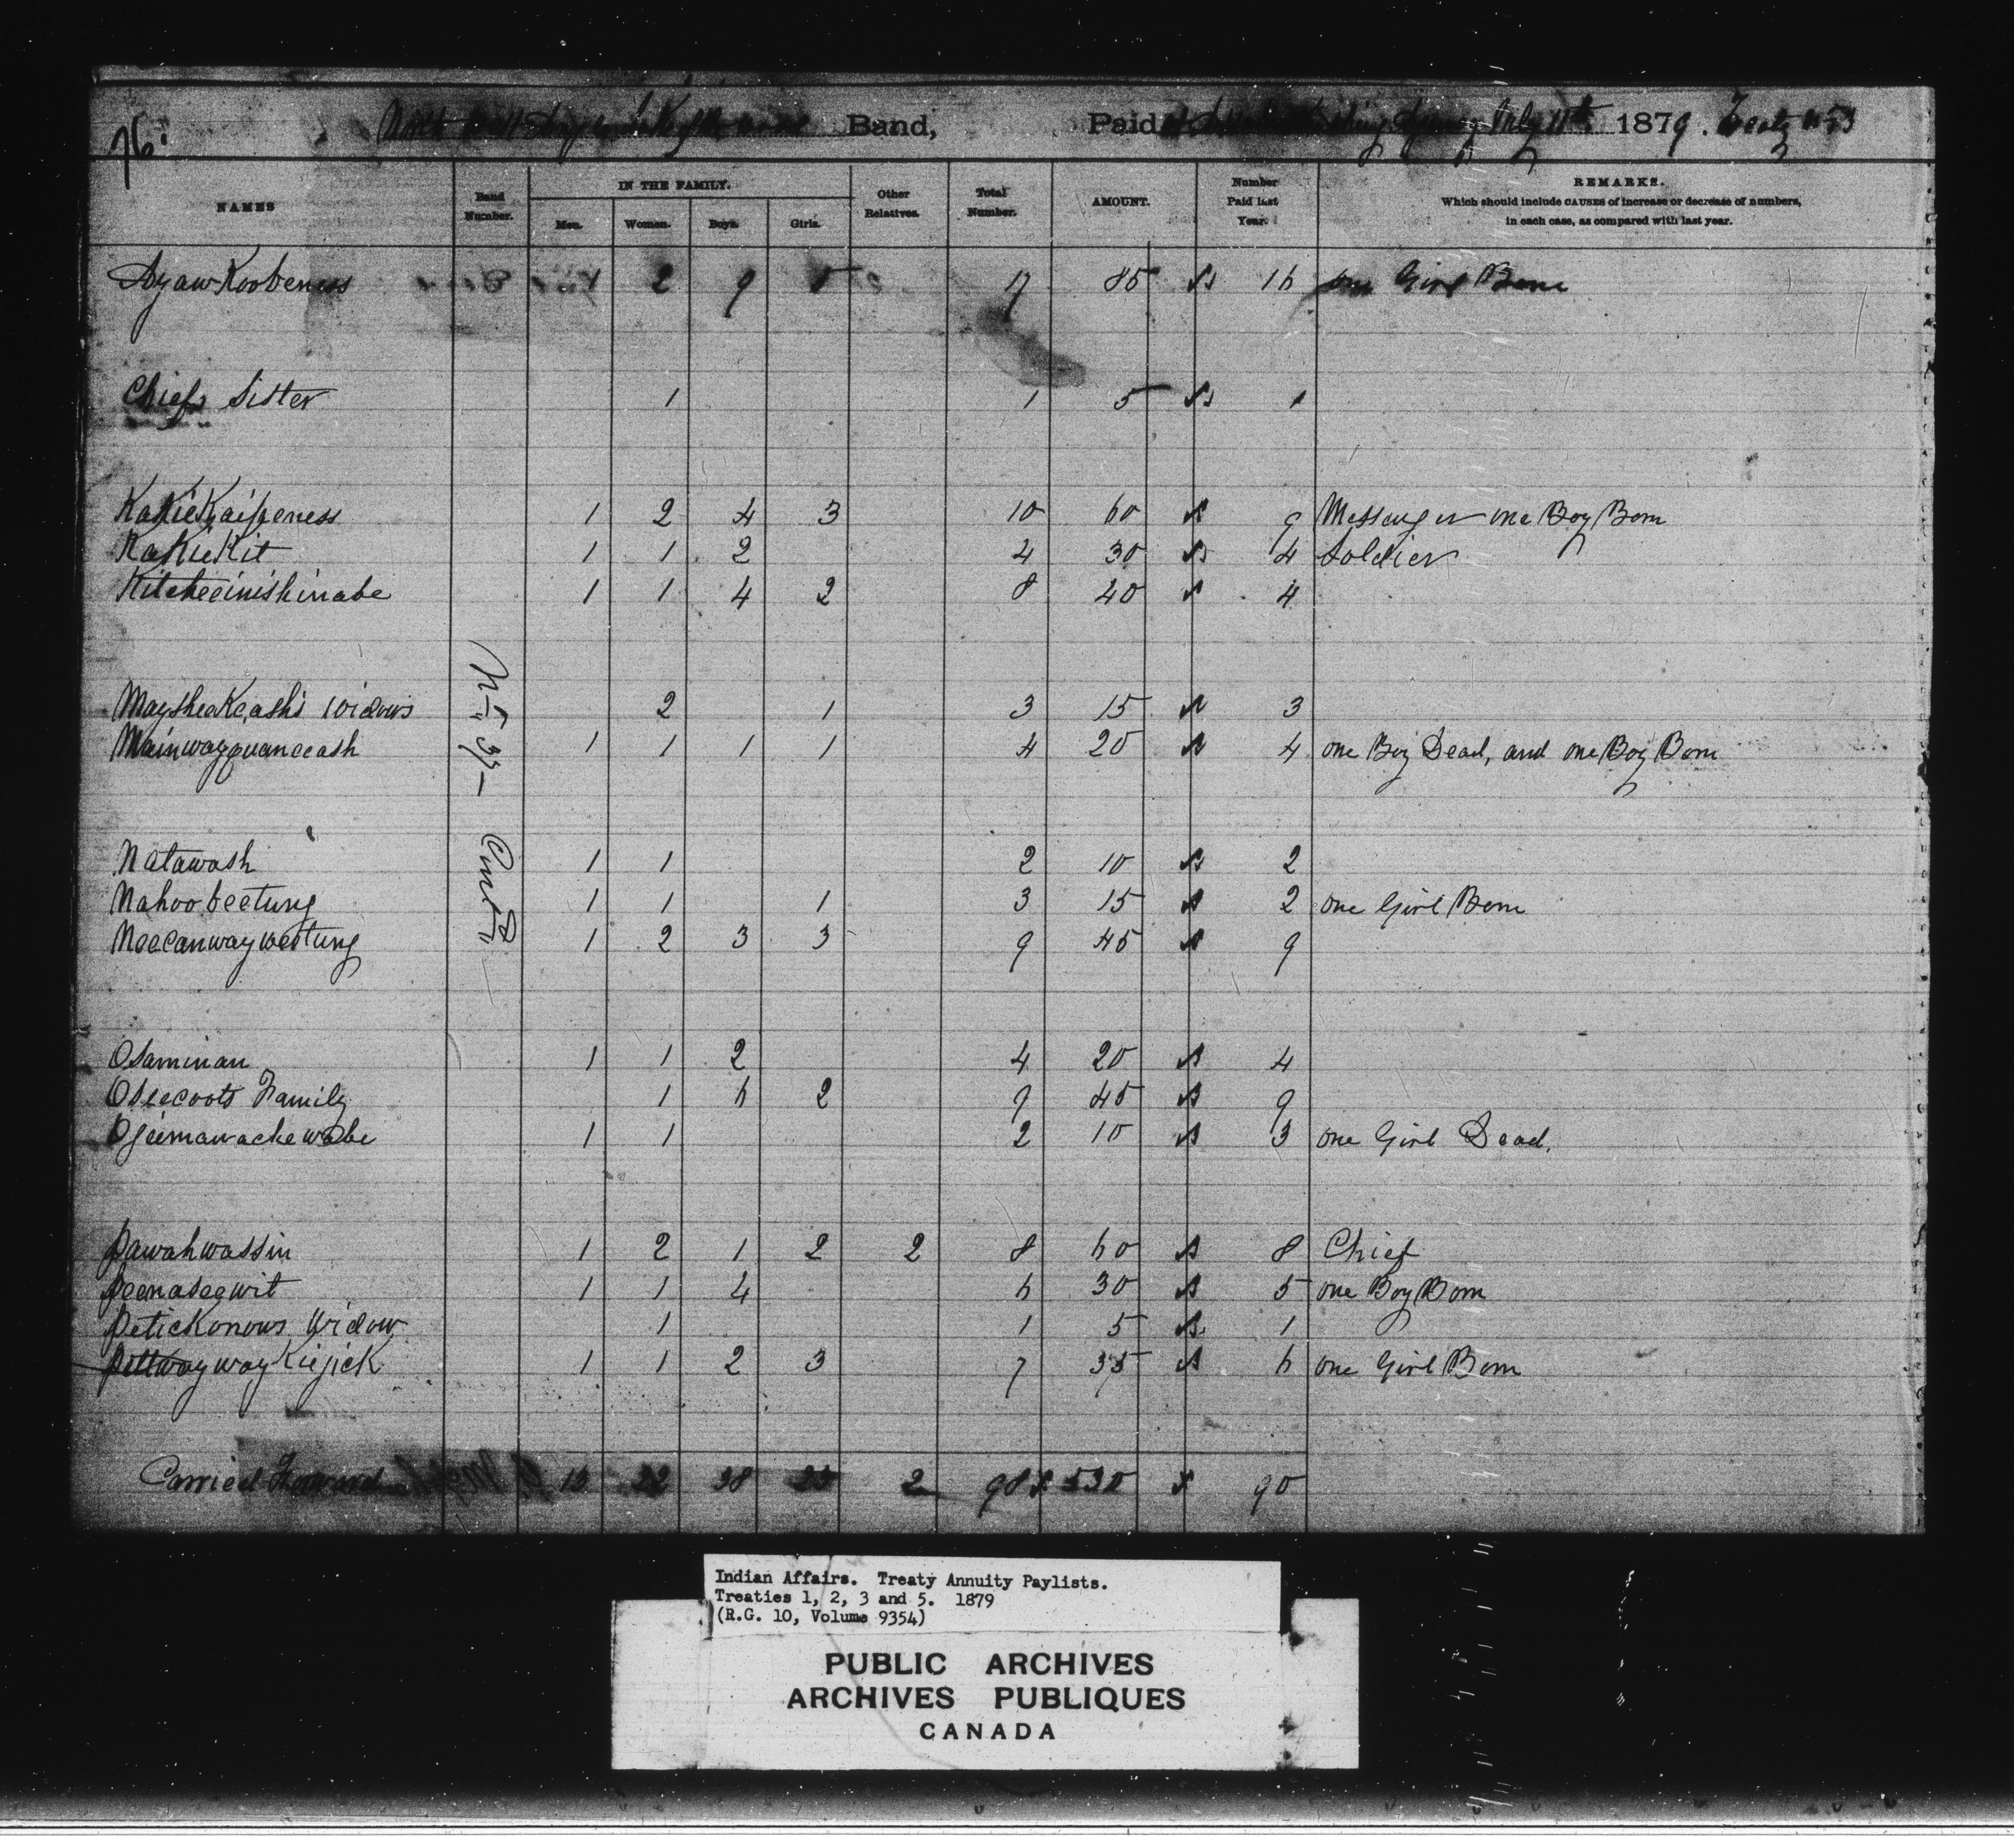 76.
North West Angle Band, Paid at Agency July 11th 1879. Treaty No 3
NAMES Band Number. IN THE FAMILY. Men. Women. Boys. Girls. Other Relatives. Total Number. AMOUNT. Number Paid last Year. REMARKS.
Which should include CAUSES of increase or decrease of numbers,
in each case, as compared with last year.
AyawKoobeness 1 2 9 5 17 85 16 one Girl Born
Chiefs Sister 1 1 5 1
KaKieKaipeness 1 2 4 3 10 60 9 Messenger one Boy Born
KaKieKit 1 1 2 4 30 4 Soldier
Kitcheeinishinabe 1 1 4 2 8 40 4
MaysheaKeash's Widows 2 1 3 15 3
Mainwayquanceash 1 1 1 1 4 20 4 one Boy Dead, and one Boy Born
Natawash 1 1 2 10 2
Nahoobeetung 1 1 1 3 15 2 one Girl Born
Neecanwaywetung 1 2 3 3 9 45 9
Osaminan 1 1 2 4 20 4
Oseecoots Family 1 6 2 9 45 9
Ojeimawachewabe 1 1 2 10 3 one Girl Dead.
Pawahwassin 1 2 1 2 2 8 60 8 Chief
Peenaseewit 1 1 4 6 30 5 one Boy Born
Petickonows Widow 1 1 5 1
PittwaywayKiejick 1 1 2 3 7 35 6 one Girl Born
Carried Forward 13 22 38 23 2 98 $ 530 90
Indian Affairs. Treaty Annuity Paylists.
Treaties 1, 2, 3 and 5. 1879
(R.G. 10, Volume 9354)
PUBLIC ARCHIVES
ARCHIVES PUBLIQUES
CANADA